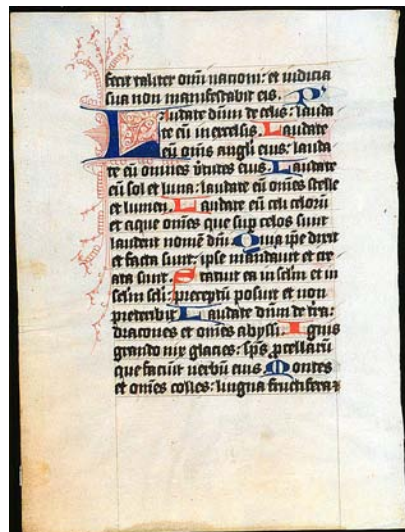 fecit taliter omi nationi: et iudicia
sua non manifestabit eis. Ps
Laudate dnm de celis: lauda
te eu in excelsis. Laudate
eu omis angli eius: lauda
te eu omnes vtutes eius. Laudate
eu sol et luna: laudate eu omes stelle
et lumen. Laudate eu celi celoru
et aque omes que sup celos sunt
laudent nome dni. Quia ipe dixit
et facta sunt: ipse mandauit et cre
ata sunt. Statuit ea in eclm et in
sclm scli: preceptu posuit et non
preteribit. Laudate dnm de tra:
dracones et omes abyssi. Ignis
grando nix glacies: sps pcellaru
que faciut uerbu eius. Montes
et omes colles: lingna fructifera